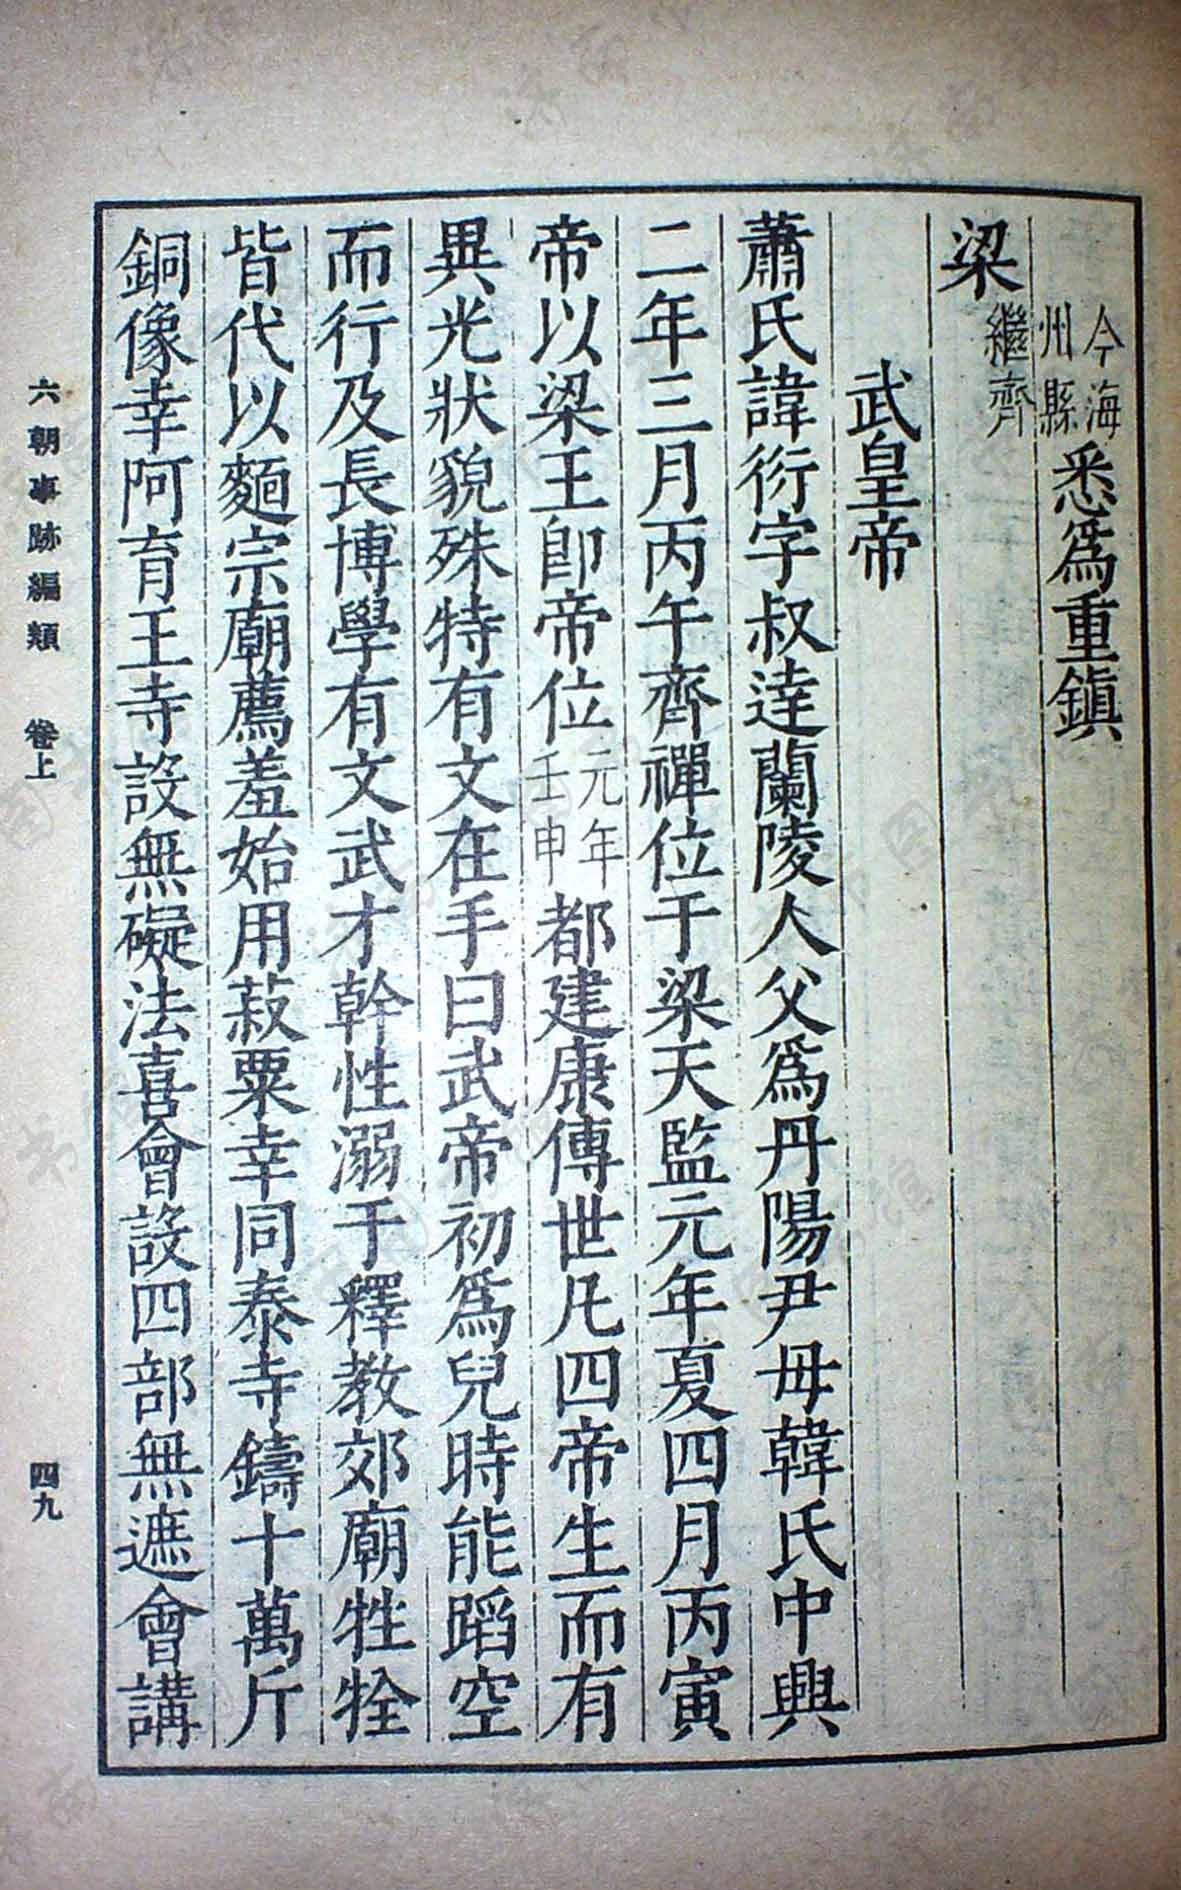 今海州縣悉爲重鎮
梁繼齊
武皇帝
蕭氏諱衍字叔達蘭陵人父爲丹陽尹母韓氏中興
二年三月丙午齊禪位于梁天監元年夏四月丙寅
帝以梁王即帝位元年壬申都建康傳世凡四帝生而有
異光狀貌殊特有文在手曰武帝初爲兒時能蹈空
而行及長博學有文武才幹性溺于釋教郊廟牲牷
皆代以麵宗廟薦羞始用菽粟幸同泰寺鑄十萬斤
銅像幸阿育王寺設無礙法喜會設四部無遮會講
六朝事跡編類 卷上 四九